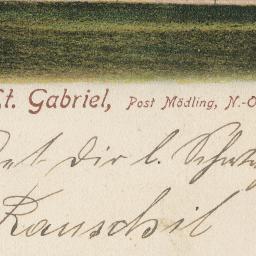 St. Gabriel, Post Mödling, N.-O
dir l. Schatz
Rauschil